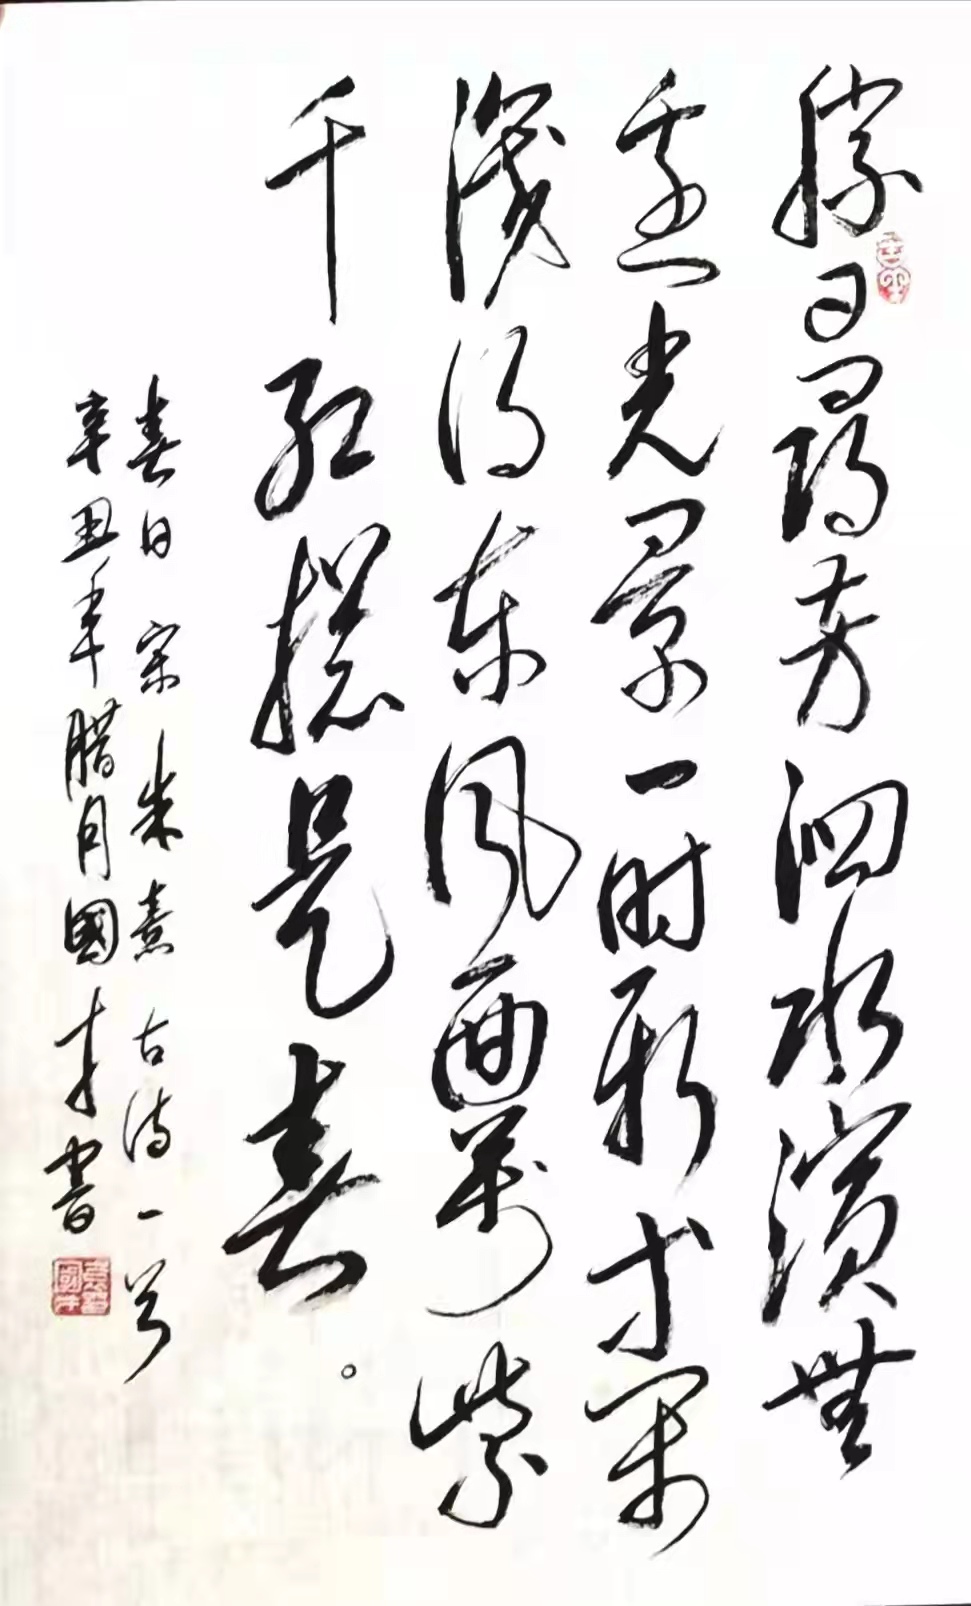 勝日尋芳泗水濱無
邊光景一時新等閑
識得東風面萬紫
千紅總是春。
春日 宋 朱熹 古詩一首
辛丑年腊月國才書